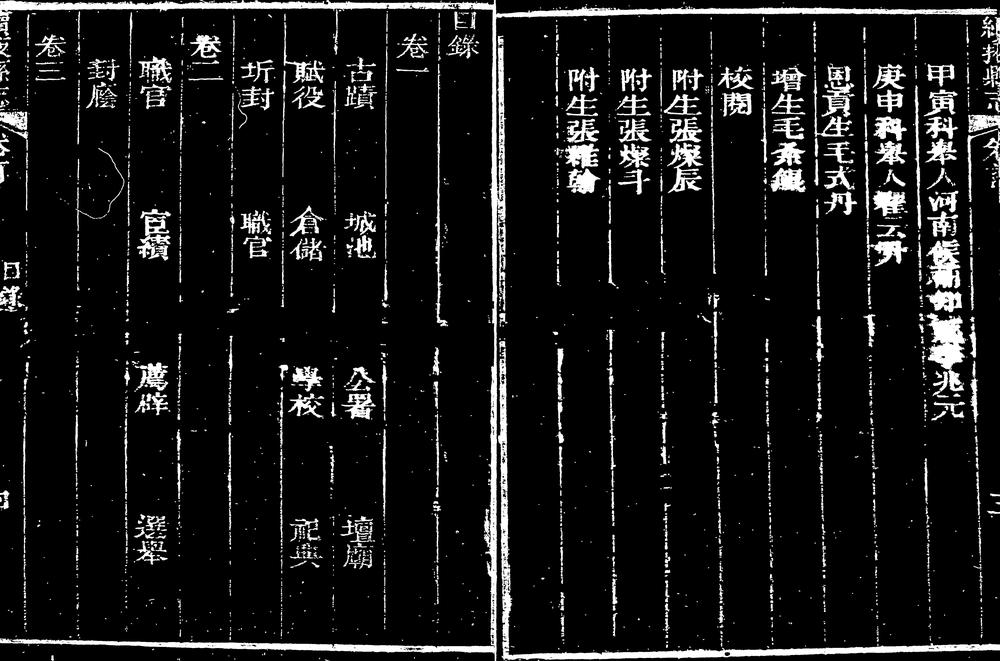 甲寅科舉人河南候補知縣李兆元
庚申科舉人翟云升
恩貢生毛式丹
增生毛系銀
校閱
附生張燦辰
附生張燦斗
附生張維翰
目錄
卷一
古蹟 城池 公署 壇廟
賦役 倉儲 學校 祀典
圻封 職官
卷二
職官 宦績 薦辟 選舉
封廕
卷三
卷首
目錄